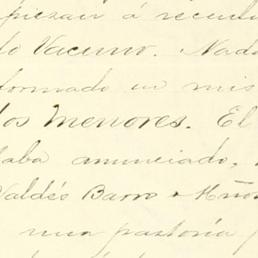 piezan á recul
do Vacuno. Nad
formado un mis
dos Menores. El
taba anunciado,
Valdés Barro
una pastoría